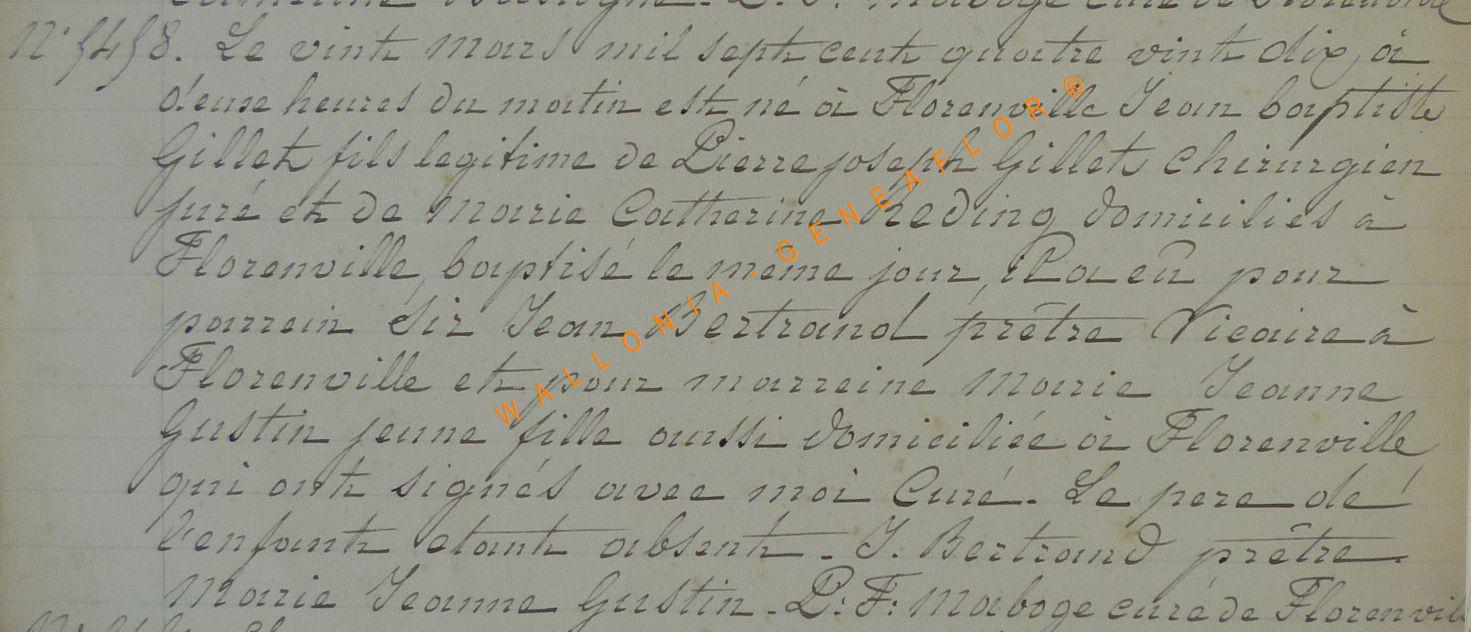 N° 5458. Le vint mars mil sept cent quatre vint dix, à
deuse heures du matin est né à Florenville Jean baptiste
Gillet fils legitime de Pierre joseph Gillet Chirurgien
juré et de Marie Catherine Reding domiciliés à
Florenville, baptisé le même jour, il a eû pour
parrein Sir Jean Bertrand prêtre Vicaire à
Florenville et pour marreine Marie Jeanne
Gustin jeune fille aussi domiciliée à Florenville
qui ont signés avec moi Curé. Le pere de
l'enfant etant absent. J. Bertrand prêtre.
Marie Jeanne Gustin. P: F: Maboge curé de Florenvil
WALLONIA - GENEAFLOR ®